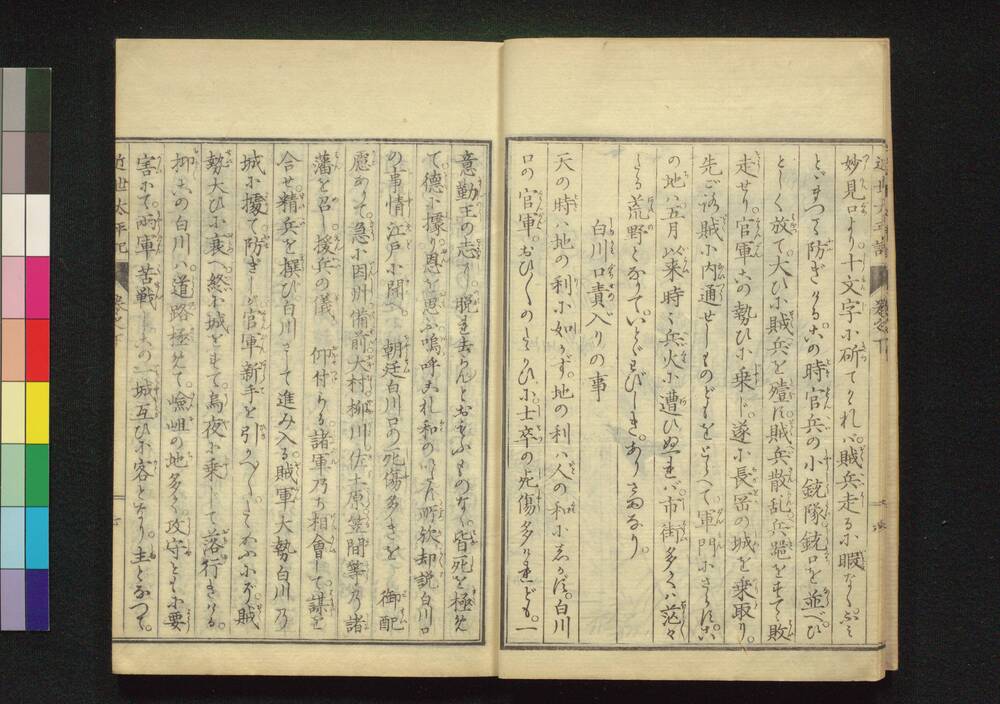 妙見口より十文字に斫てかれバ賊兵走るに暇なく
防ぎける此の時官兵の小銃隊銃口を並べひ
としく放て大ひに賊兵を殪す賊兵散乱兵器をすて敗
走せり官軍此の勢ひに乗じ遂に長岡の城を乗取り
先ごろ賊に内通せしものどもをとらへて軍門にさらす此
の地ハ五月以来時々兵火に遭ひぬれバ市街多くハ茫々
たる荒野となりていとわびしきありさまなり
白川口責入りの事
天の時ハ地の利に如かず地の利ハ人の和に志かず白川
口の官軍おひ〳〵のたゝかひに士卒の死傷多けれども一
意勤王の志にて脱れ去らんとおもふものなく皆死を極め
て徳に據り恩を思ふ嗚呼札和の所欤却説白川口
の事情江戸に聞へ朝廷白川口の死傷多きを御配
慮ありて急に因州備前大村柳川佐土原笠間等乃諸
藩を召し援兵の儀仰付らる諸軍乃ち相會して謀を
合せ精兵を撰び白川さして進み入る賊軍大勢白川乃
城に據て防ぎしが官軍新手を引かへ〳〵たゝかふにぞ賊
勢大ひに衰へ終に城をすて烏夜に乗じて落行きける
抑此の白川ハ道路極めて嶮岨の地多く攻守ともに要
害にて両軍苦戦し此の一城互ひに客となり主となつて
近世太平記 巻之下